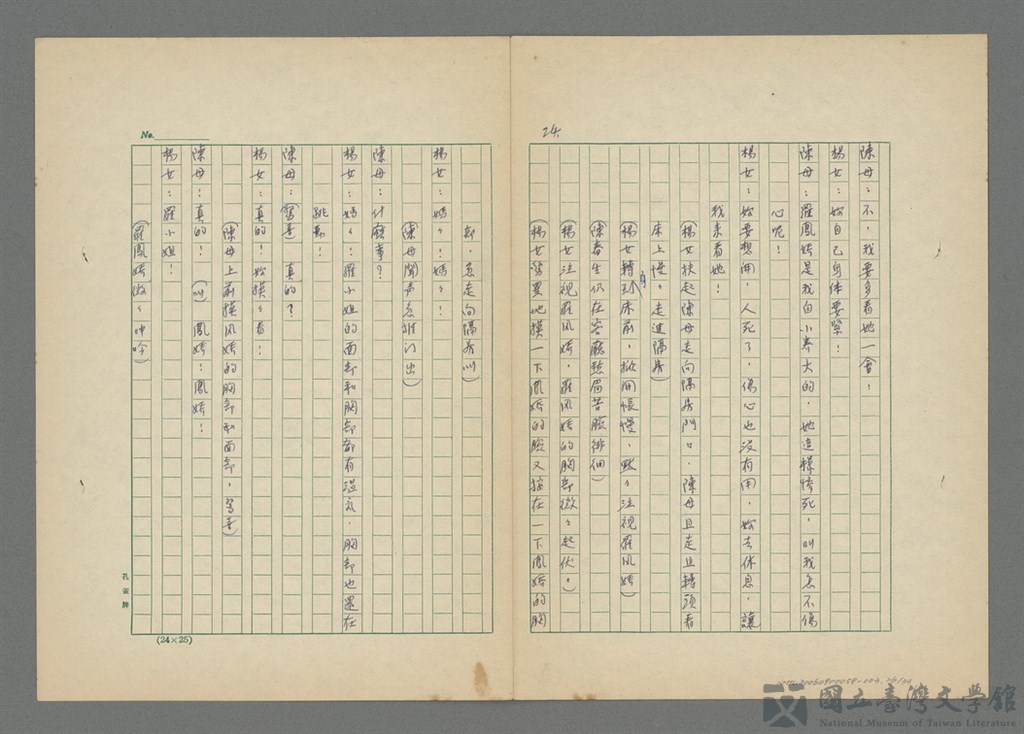 24.
陳母：不，我要多看她一會！
楊女：妳自己身体要緊！
陳母：羅鳳嬌是我自小養大的，她這樣慘死，叫我怎不傷
心呢！
楊女：妳要想開，人死了，傷心也沒有用，妳去休息，讓
我來看她！
（楊女扶起陳母走向隔房門口，陳母且走且轉頭看
床上慢々走進隔房）
（楊女轉身床前，掀開帳幔，默々注視羅鳳嬌）
（陳春生仍在客廳愁眉苦臉徘徊）
（楊女注視羅鳳嬌，羅鳳嬌的胸部微々起伏。）
（楊女驚異地摸一下鳳嬌的臉又按在一下鳳嬌的胸
部，急走向隔房叫）
楊女：媽々！媽々！
（陳母聞声急推门出）
陳母：什麼事？
楊女：媽々！羅小姐的面部和胸部都有溫氣，胸部也還在
跳動！
陳母：（驚喜）真的？
楊女：真的！妳摸々看！
（陳母上前摸鳳嬌的胸部和面部，驚喜）
陳母：真的！（叫）鳳嬌！鳳嬌！
楊女：羅小姐！
（羅鳳嬌微々呻吟）
No.
孔雀牌
(24×25)
國立臺灣文學館
National Museum of Taiwan Literature